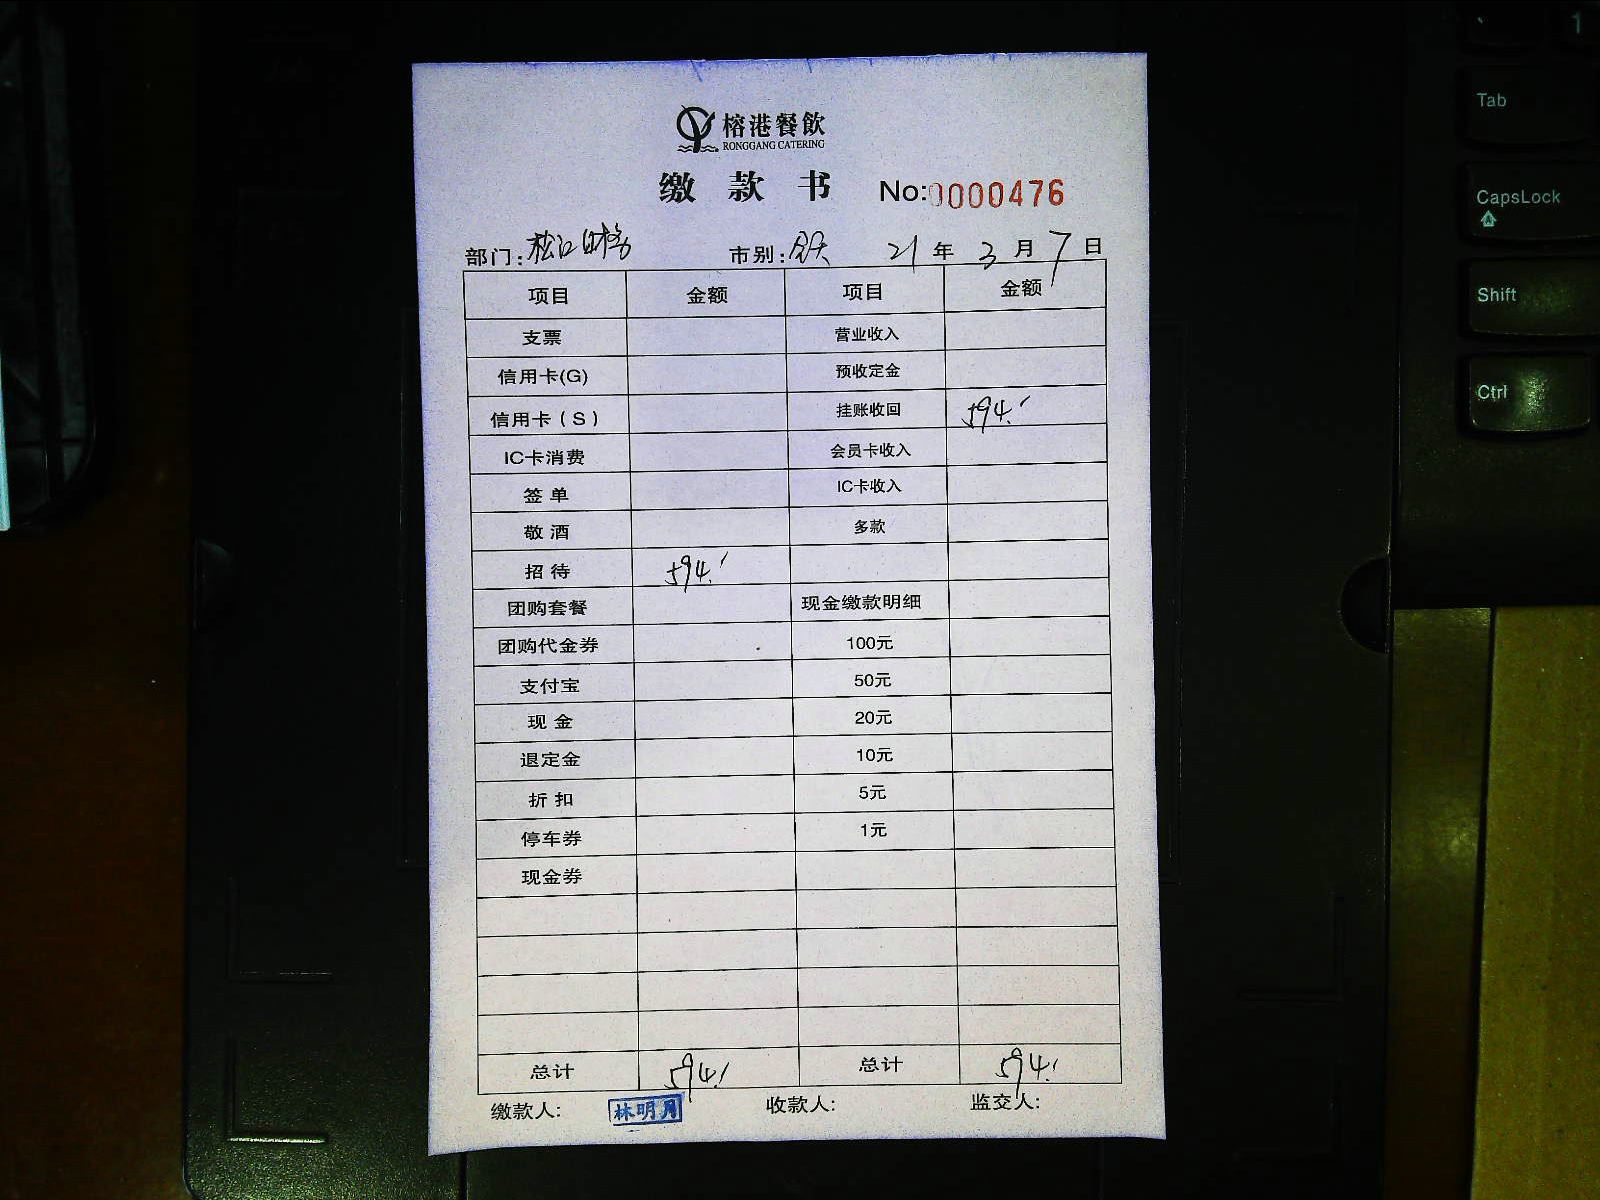 榕港餐飲
RONGGANG CATERING
缴款书 No:0000476
部门:松江财务 市别:全天 21年3月7日
项目 金额 项目 金额
支票 营业收入
信用卡(G) 预收定金
信用卡(S) 挂账收回 594.-
IC卡消费 会员卡收入
签单 IC卡收入
敬酒 多款
招待 594.-
团购套餐 现金缴款明细
团购代金券 100元
支付宝 50元
现金 20元
退定金 10元
折扣 5元
停车券 1元
现金券
总计 594.- 总计 594.-
缴款人: 林明月 收款人: 监交人:
1
Tab
CapsLock
Shift
Ctrl